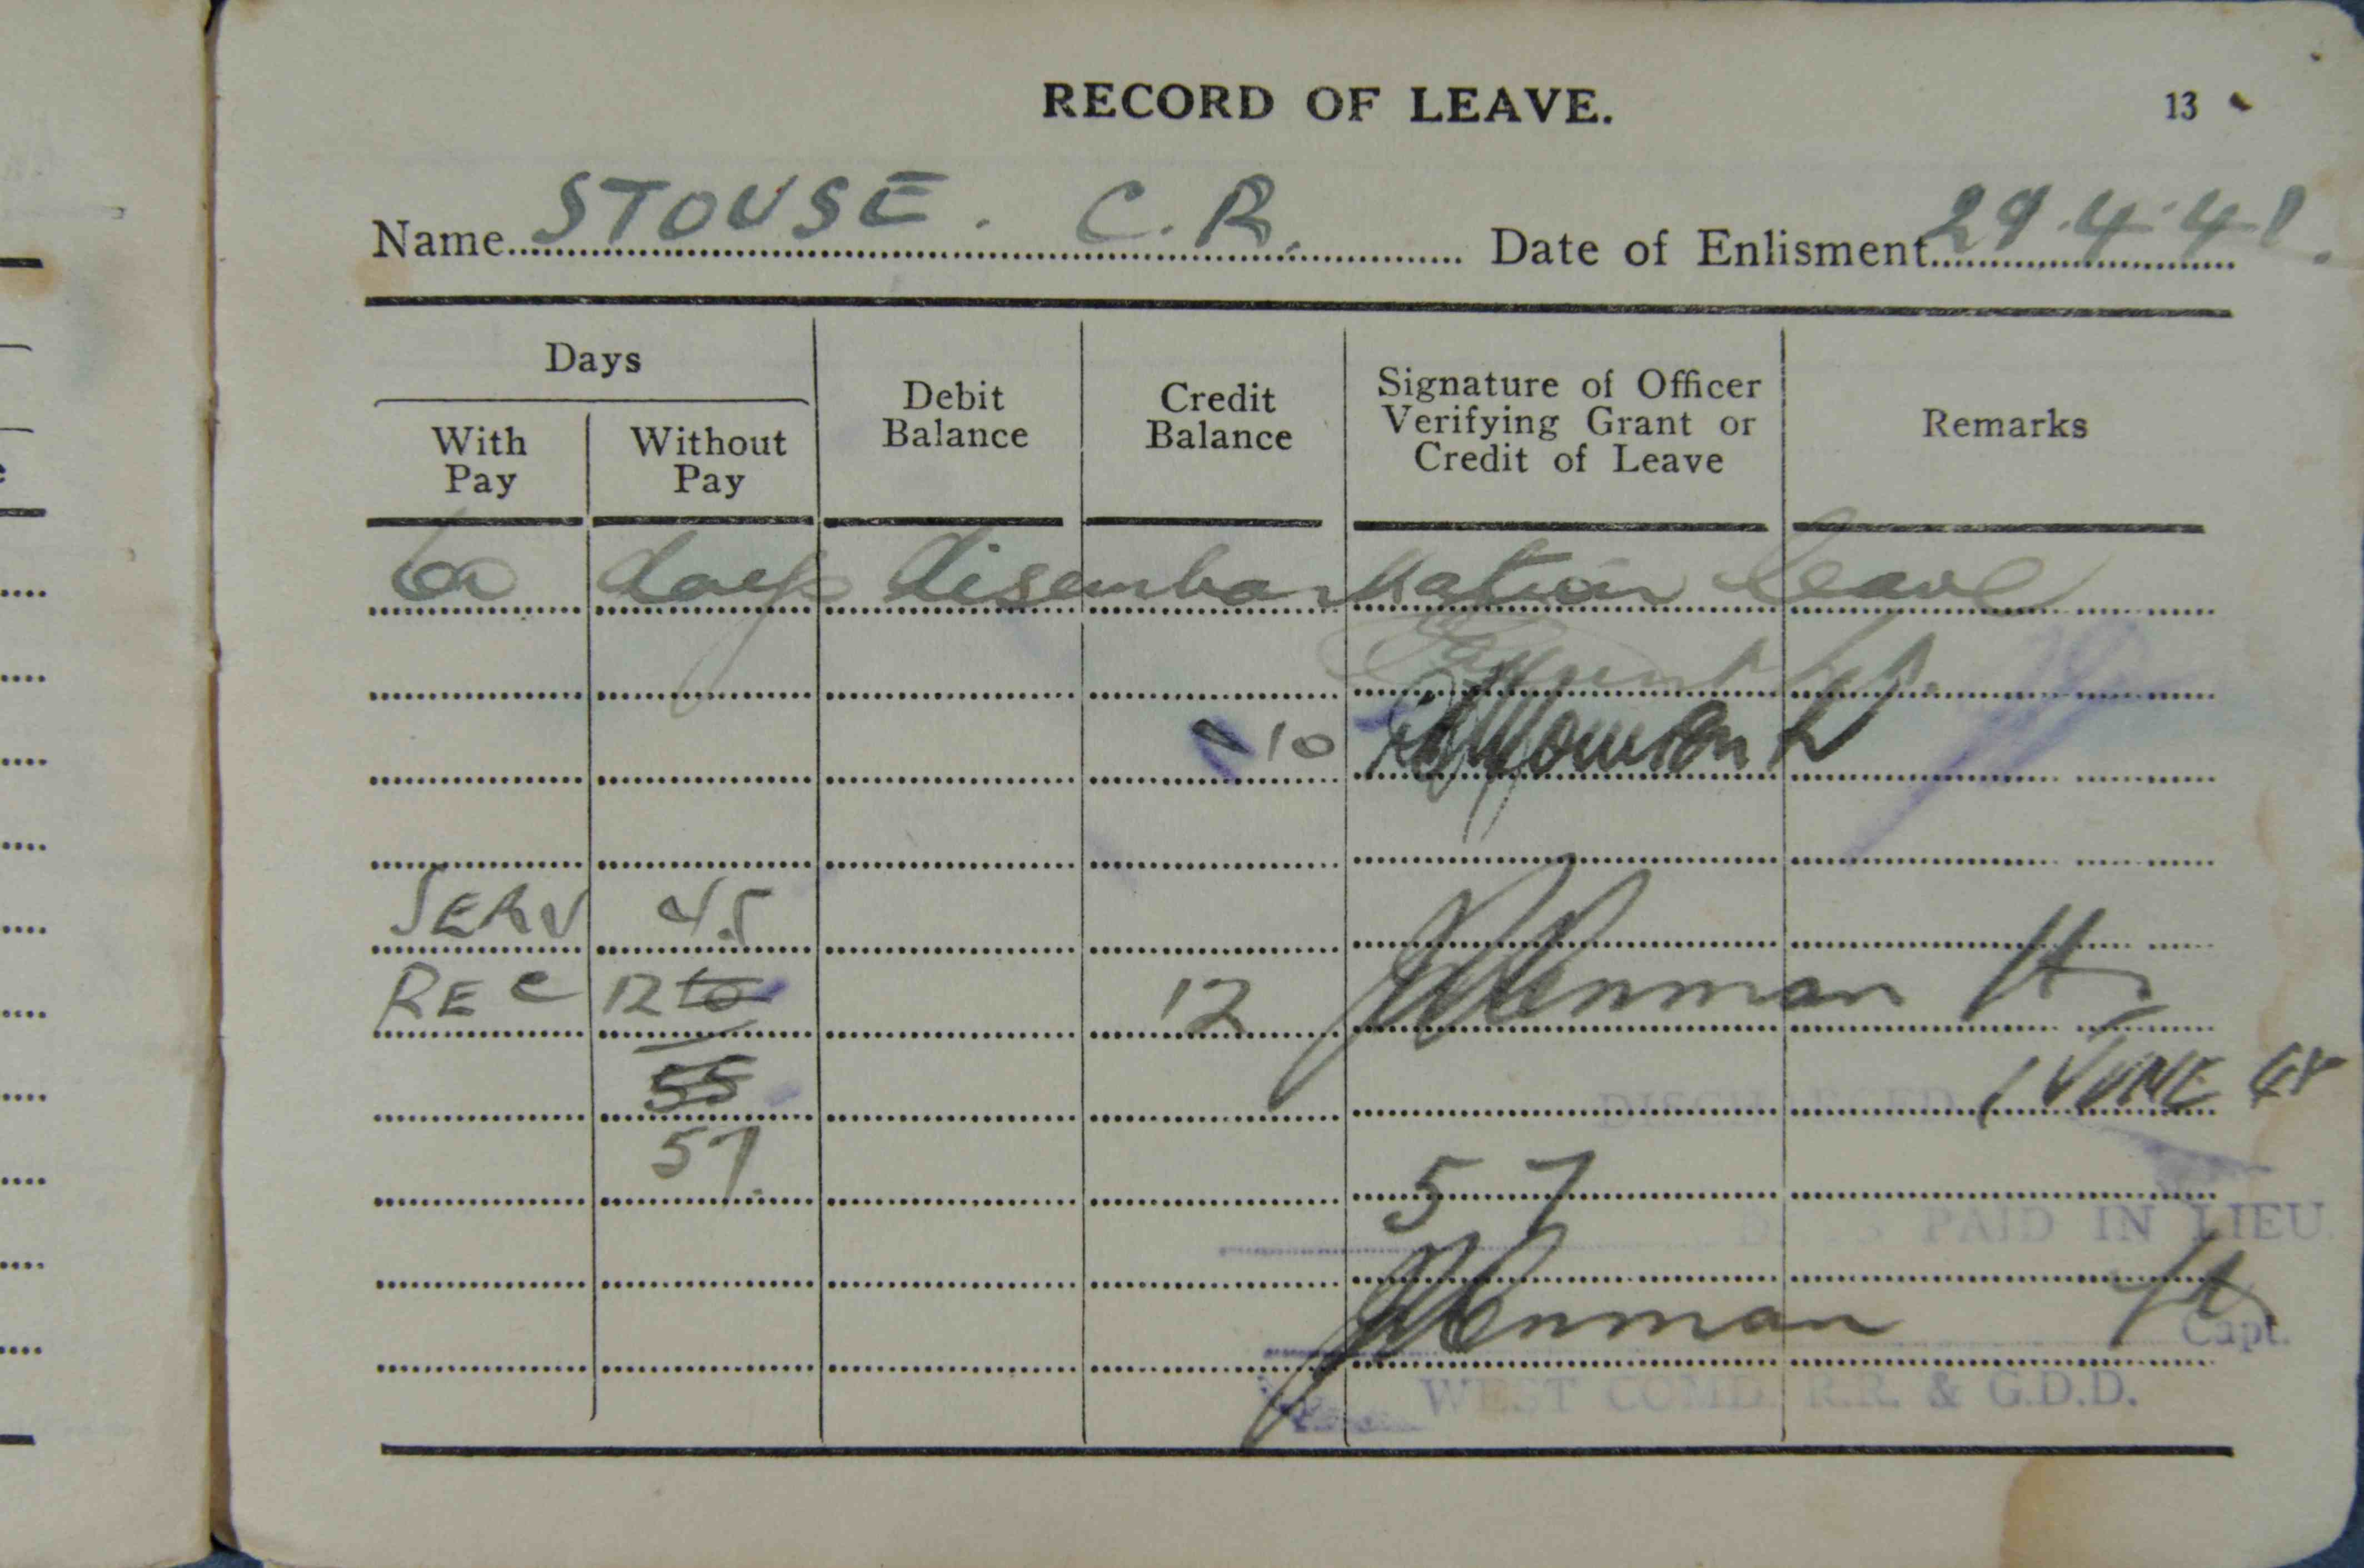 RECORD OF LEAVE.
13
Name STOUSE. C.R. Date of Enlisment 29.4.41.
Days
With Pay
Without Pay
Debit Balance
Credit Balance
Signature of Officer Verifying Grant or Credit of Leave
Remarks
60 days disembarkation leave
10
SERV 45
REC 12 10 12 Penman Lt
55 DISCHARGED 1 JUNE 48
57.
57 DAYS PAID IN LIEU.
Penman Lt
Capt.
WEST COMD. R.R. & G.D.D.